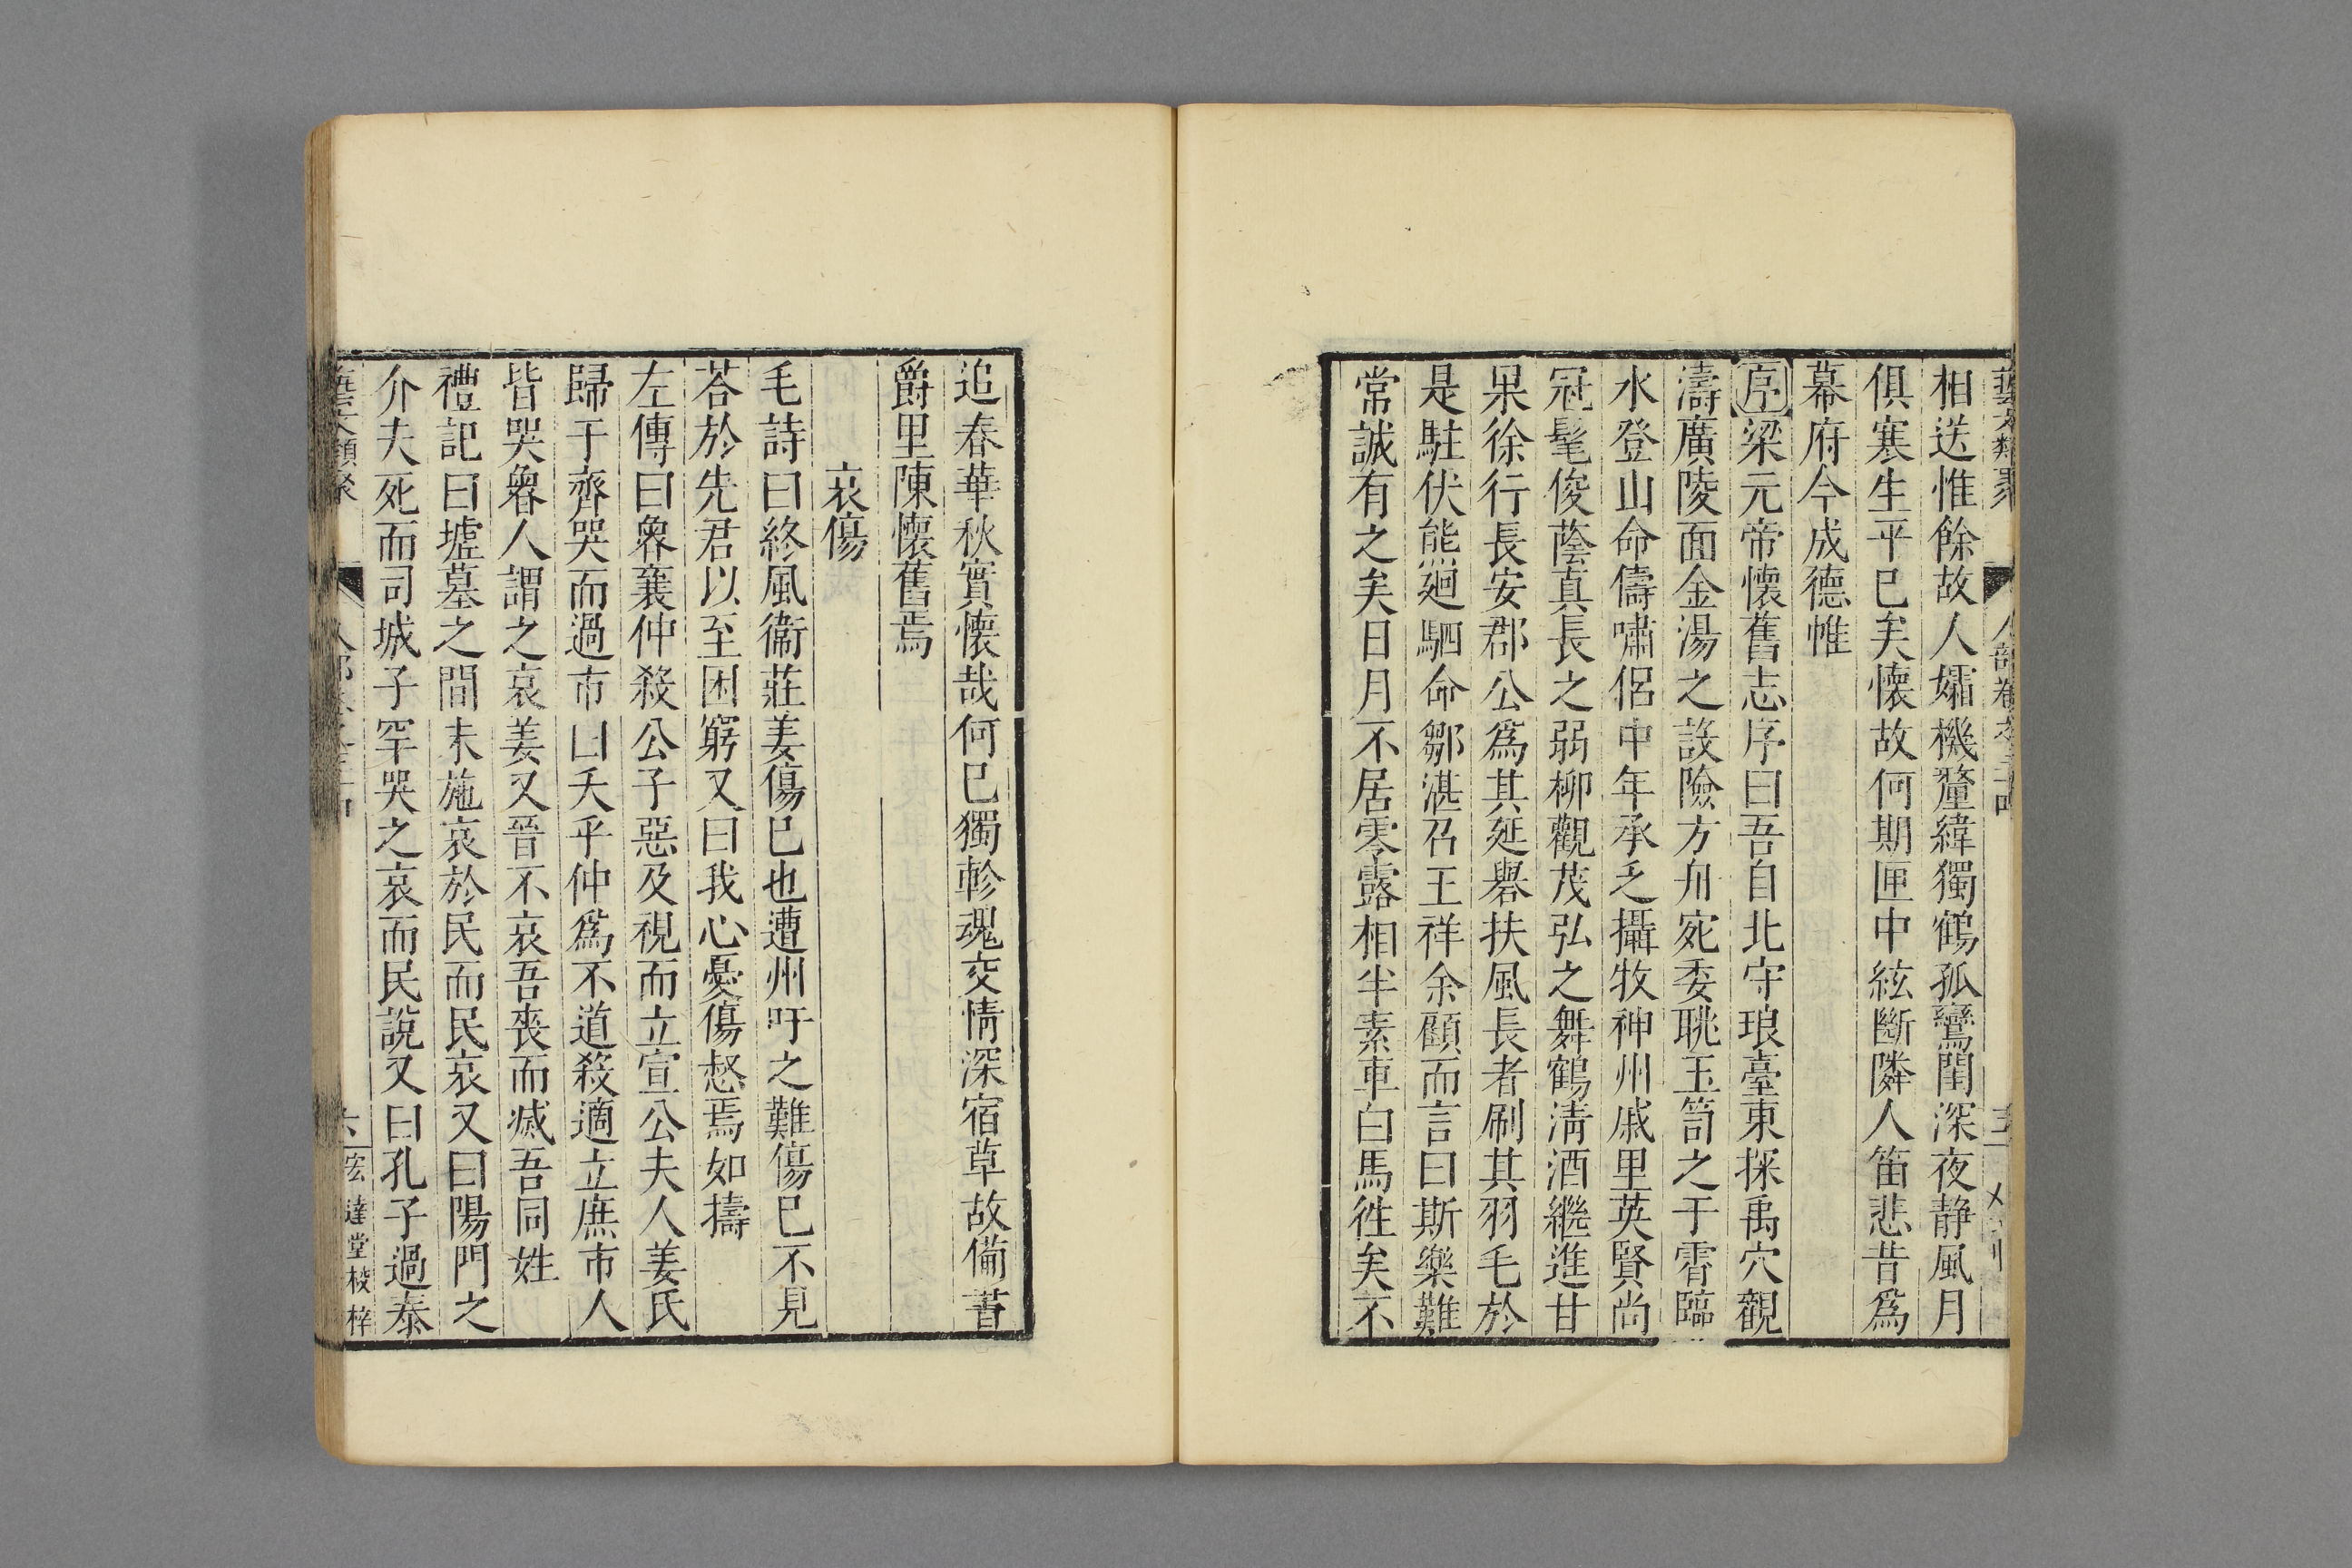 藝文類聚 人部卷之三十四
相送惟餘故人孀機釐緯獨鶴孤鸞閨深夜静風月
俱寒生平已矣懷故何期匣中絃斷隣人笛悲昔爲
幕府今成德帷
序梁元帝懷舊志序曰吾自北守琅臺東探禹穴觀
濤廣陵面金湯之設險方舟宛委眺玉笥之于霄臨
水登山命儔嘯侶中年承乏攝牧神州戚里英賢尚
冠髦俊蔭真長之弱柳觀茂弘之舞鶴清酒繼進甘
果徐行長安郡公爲其延譽扶風長者刷其羽毛於
是駐伏熊廻駟命鄒湛召王祥余顧而言曰斯樂難
常誠有之矣日月不居零露相半素車白馬徃矣不
追春華秋實懷哉何已獨軫魂交情深宿草故備著
爵里陳懷舊焉
哀傷
毛詩曰終風衞莊姜傷已也遭州吁之難傷已不見
荅於先君以至困窮又曰我心憂傷惄焉如擣
左傳曰魯襄仲殺公子惡及視而立宣公夫人姜氏
歸于齊哭而過市曰天乎仲爲不道殺適立庶市人
皆哭魯人謂之哀姜又晉不哀吾喪而戚吾同姓
禮記曰墟墓之間未施哀於民而民哀又曰陽門之
介夫死而司城子罕哭之哀而民說又曰孔子過泰
藝文類聚 人部 六 宏達堂校梓